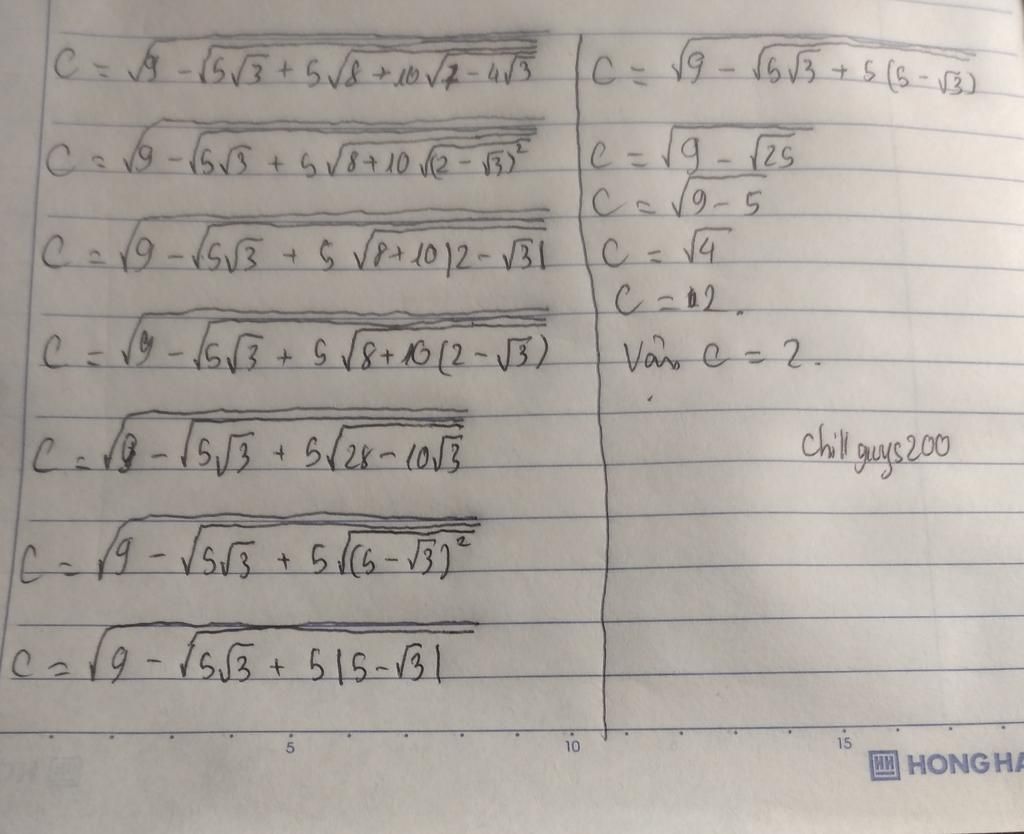 C = √(9 - √(5√3 + 5√(8 + 10√(7 - 4√3))))
C = √(9 - √(5√3 + 5√(8 + 10√((2 - √3)²))))
C = √(9 - √(5√3 + 5√(8 + 10|2 - √3|)))
C = √(9 - √(5√3 + 5√(8 + 10(2 - √3))))
C = √(9 - √(5√3 + 5√(28 - 10√3)))
C = √(9 - √(5√3 + 5√((5 - √3)²)))
C = √(9 - √(5√3 + 5|5 - √3|))
C = √(9 - √(5√3 + 5(5 - √3)))
C = √(9 - √25)
C = √(9 - 5)
C = √4
C = 2.
C = 2.
Chill guys200
5 10 15
HONG HA